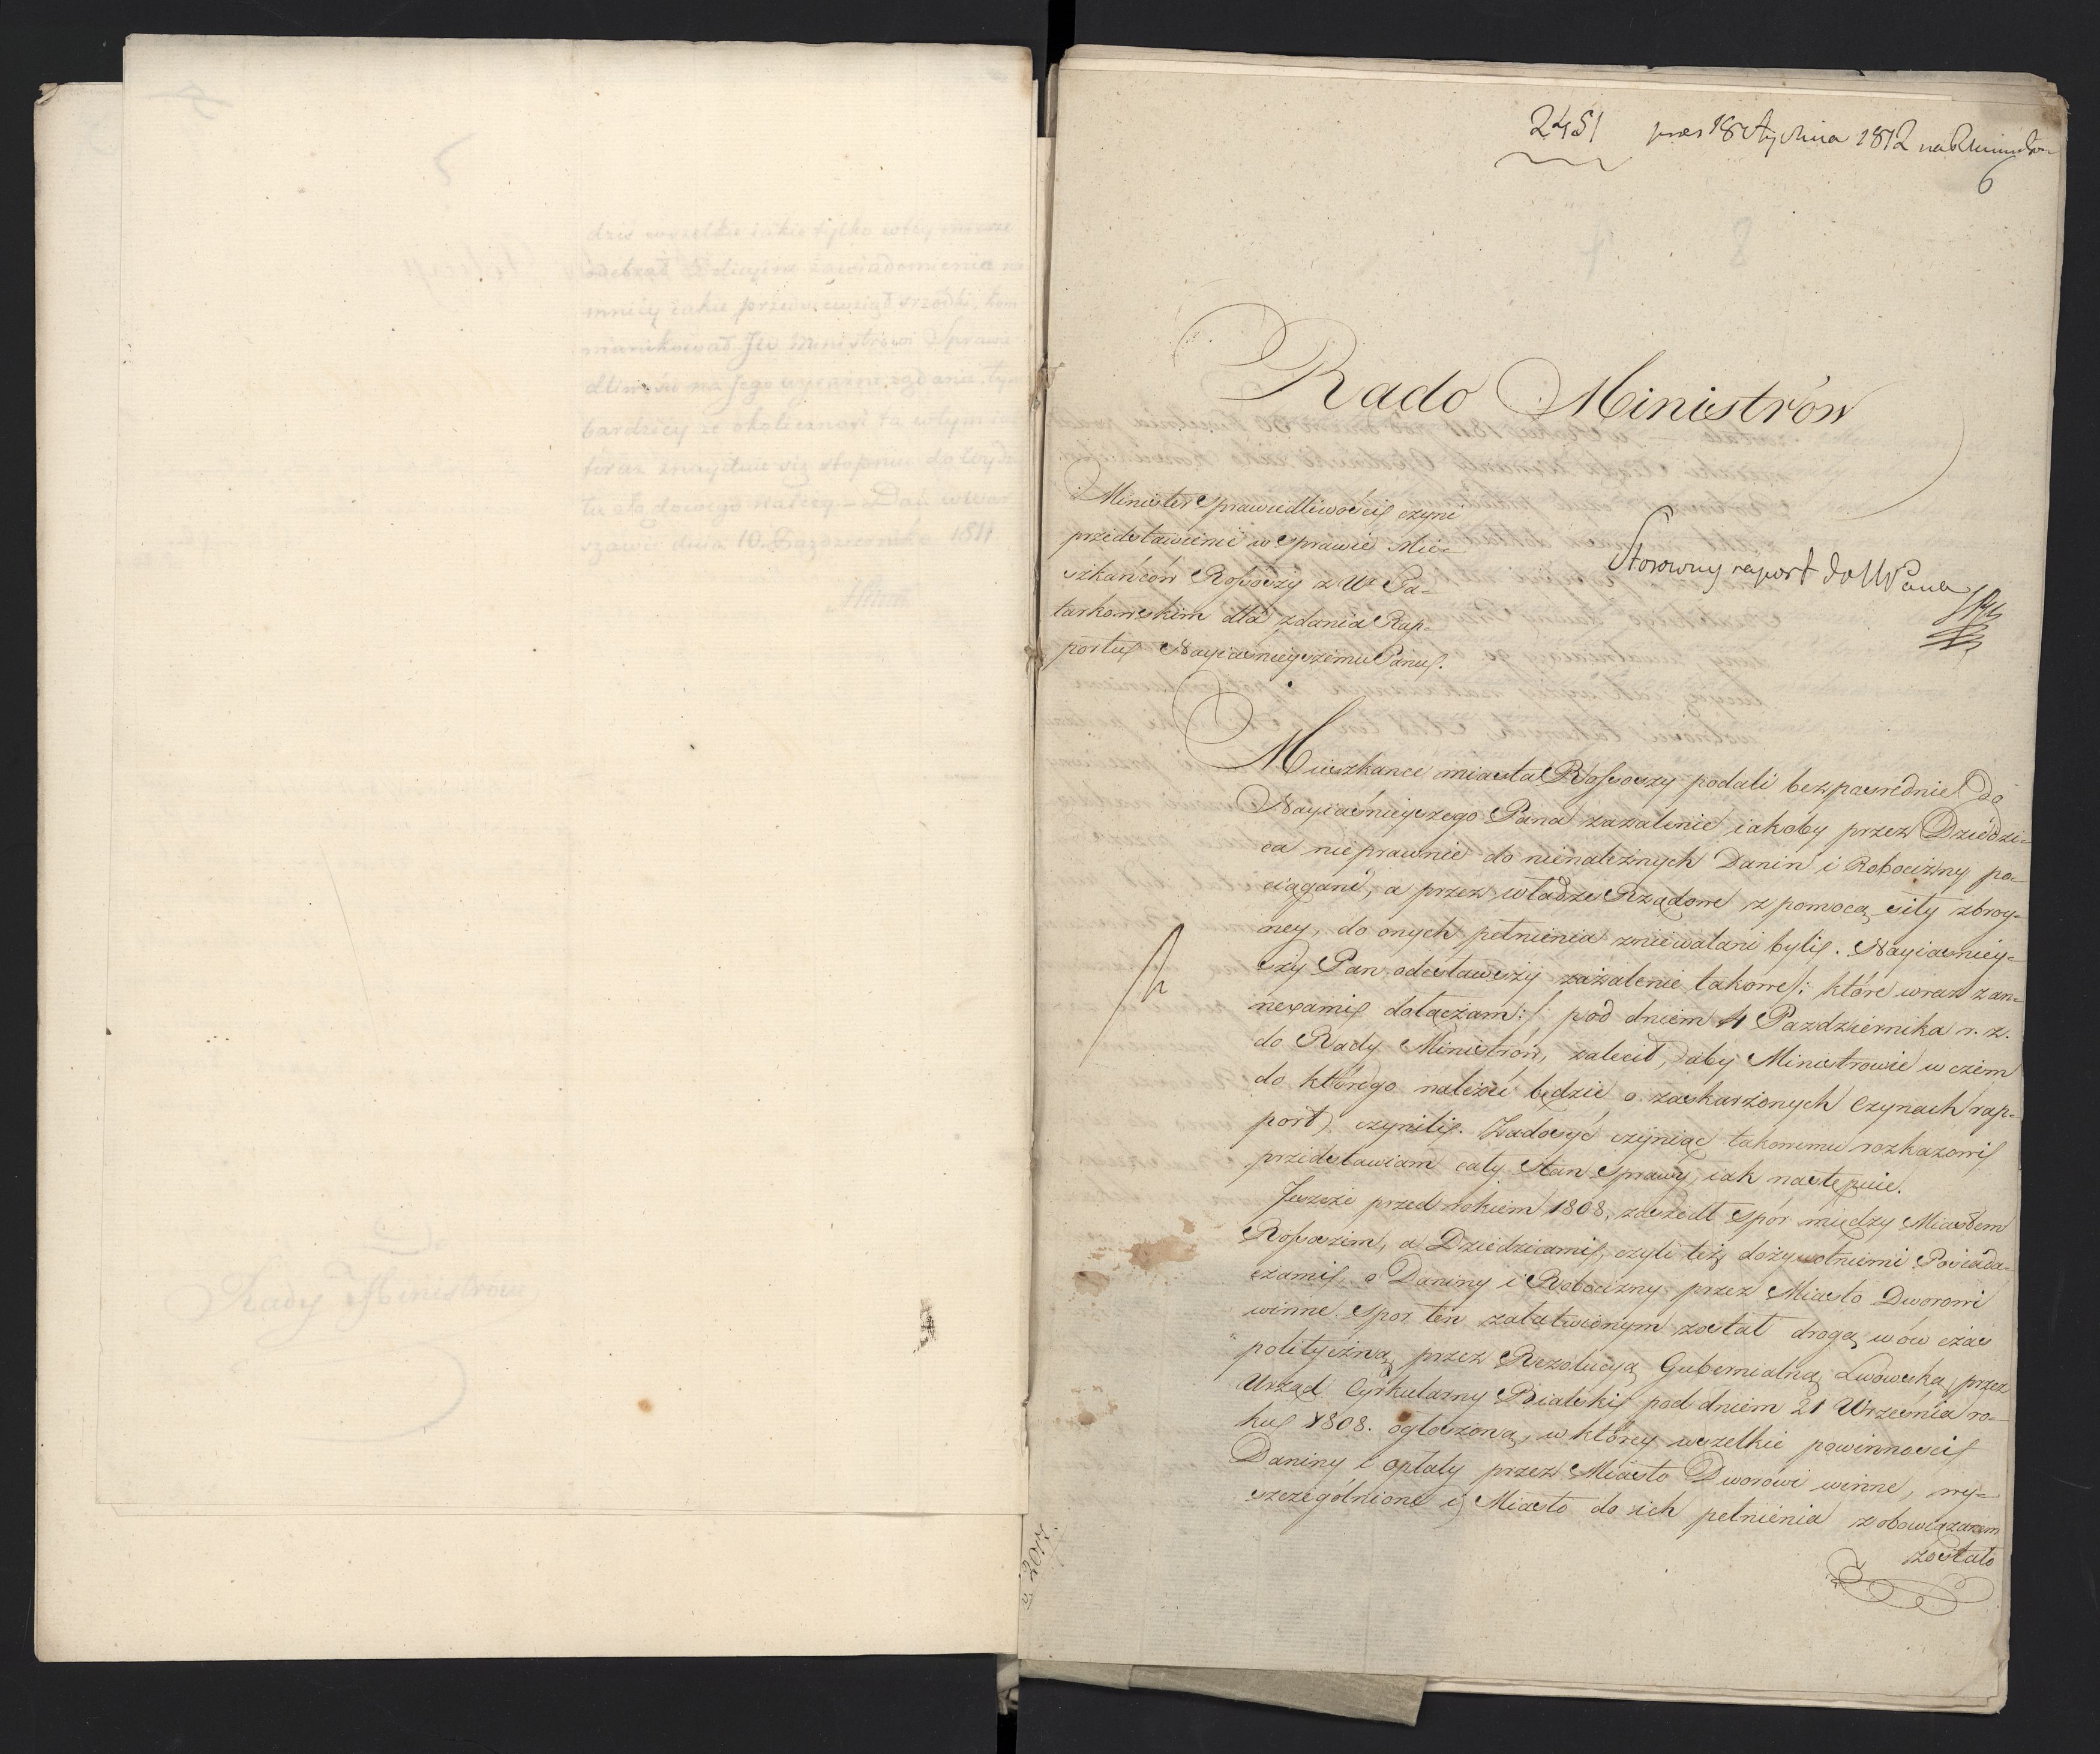 5
dziś wszelkie iakie tylko w tey mierze
odebrał zawiadomienia
mniey iakie przedsięwziął srzodki, kom
munikował JW Ministrowi Sprawie
dliwości na Jego zdanie, tym
bardziey ze okoliczność ta w tym
teraz znayduie się stopniu do Wydzia
łu Sądowego należy – Dan w War
szawie dnia 10. Pazdziernika 1811.
Rady Ministrów
2451 18 Stycznia 1812 na R Ministrów
6
Rado Ministrów
Minister Sprawiedliwości czyni
przedstawienie w Sprawie Mie-
szkańców Rossoszy z Ur Pa-
tarkowskim dla zdania Rap-
portu Nayiasnieyszemu Panu.
Stosowny raport do NPana
Mieszkance miasta Rossoszy podali bezpośrednie do
Nayiaśnieyszego Pana zażalenie iakoby przez Dziedzi-
ca nieprawnie do nienależnych Danin i Robocizny po-
ciągani, a przez władze Rządowe z pomocą siły zbroy-
ney, do onych pełnienia zniewalani byli. Nayiasniey-
szy Pan odesławszy zażalenie takowe /: które wraz z an-
nexami dołączam :/ pod dniem 4 Pazdziernika r. z.
do Rady Ministrów, zalecił, aby Ministrowie w czem
do którego należeć będzie o zaskarżonych Czynach rap-
port czynili. Zadosyć czyniąc takowemu rozkazowi
przedstawiam cały Stan Sprawy, iak następuie.
Jeszcze przed rokiem 1808. zaszedł spór między Miastem
Rossoszem, a Dziedzicami, czyli też dożywotniemi Posiada-
czami, o Daniny i Robocizny przez Miasto Dworowi
winne. Spor ten załatwionym został drogą wów czas
polityczną przez Rezolucyą Gubernialną Lwowską, przez
Urząd Cyrkularny Bialski pod dniem 21 Września ro-
ku 1808. ogłoszoną, w którey wszelkie powinności
Daniny i opłaty przez Miasto Dworowi winne, wy-
szczególnione i Miasto do ich pełnienia zobowiązanem
zostało